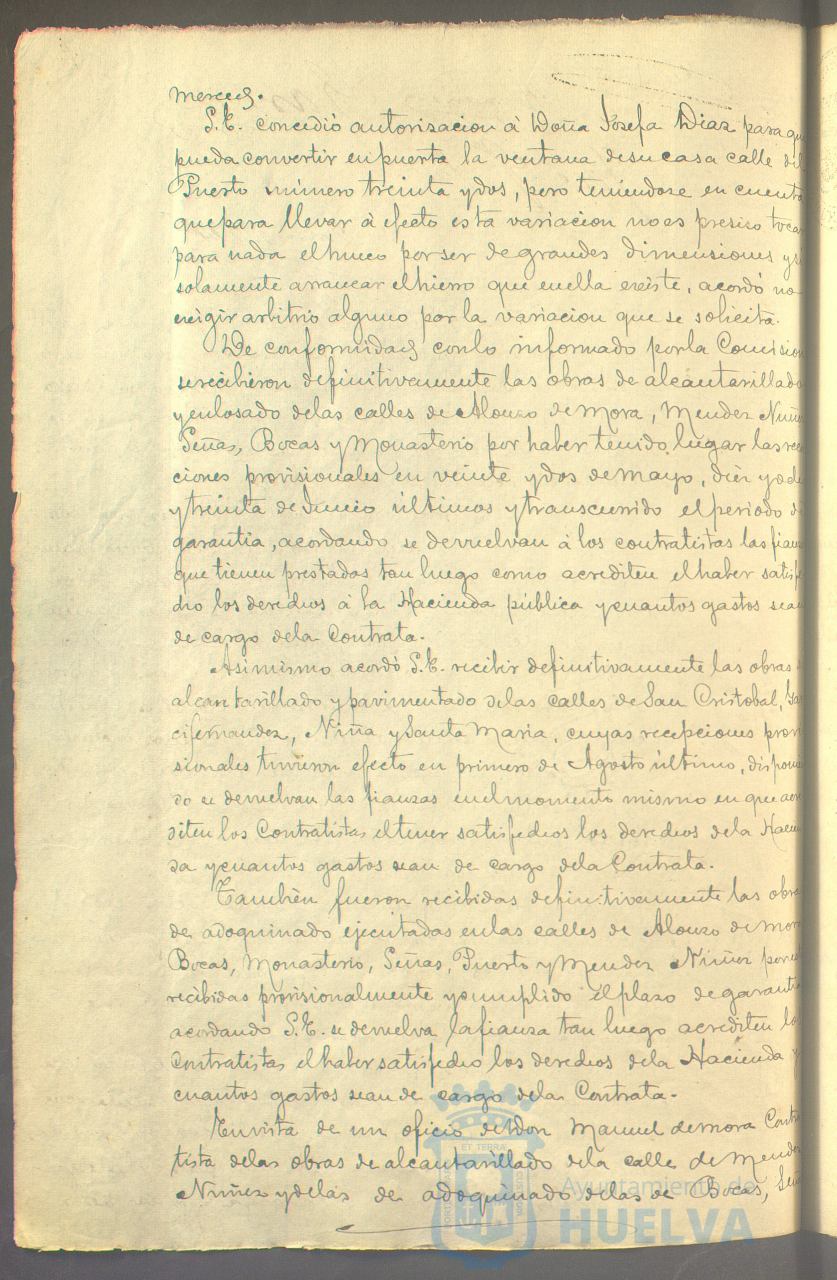 merced.
S.E. concedió autorizacion á Doña Josefa Diaz para qu
pueda convertir en puerta la ventana de su casa calle del
Puerto número treinta y dos, pero teniendose en cuenta
que para llevar á efecto esta variacion no es preciso tocar
para nada el hueco por ser de grandes dimensiones y si
solamente arrancar el hierro que en ella existe, acordó no
exigir arbitrio alguno por la variacion que se solicita.
De conformidad con lo informado por la Comision
se recibieron definitivamente las obras de alcantarillado
y enlosado de las calles de Alonso de Mora, Mendez Nuñe
Señas, Bocas y Monasterio por haber tenido lugar las rec
ciones provisionales en veinte y dos de mayo, diez y och
y treinta de Junio últimos y transcurrido el periodo de
garantia, acordando se devuelvan á los contratistas las fianz
que tienen prestadas tan luego como acrediten el haber satisfe
cho los derechos á la Hacienda pública y cuantos gastos sean
de cargo de la Contrata.
Asimismo acordó S.E. recibir definitivamente las obras
alcantarillado y pavimentado de las calles de San Cristobal, Gar
cifernandez, Niña y Santa Maria, cuyas recepciones provi
sionales tuvieron efecto en primero de Agosto último, disponien
do se devuelvan las fianzas en el momento mismo en que acre
diten los Contratistas el tener satisfechos los derechos de la Hacien
da y cuantos gastos sean de cargo de la Contrata.
Tambien fueron recibidas definitivamente las obras
de adoquinado ejecutadas en las calles de Alonzo de Mora
Bocas, Monasterio, Señas, Puerto y Mendez Nuñez por est
recibidas provisionalmente y cumplido el plazo de garantia
acordando S.E. se devuelva la fianza tan luego acrediten los
Contratistas el haber satisfecho los derechos de la Hacienda y
cuantos gastos sean de cargo de la Contrata.
En vista de un oficio de Don Manuel de mora Contra
tista de las obras de alcantarillado de la calle de Mendez
Nuñez y de las de adoquinado de las de Bocas, Seña
ET TERRA
Ayuntamiento de
HUELVA